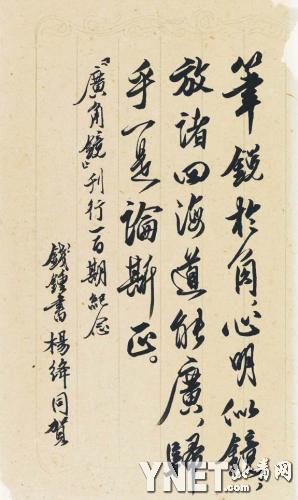 筆銳於角、心明似鏡、
放諸四海道能廣、歸
乎一是論斯正。
『廣角鏡』刊行一百期紀念
錢鍾書楊絳同賀
YNET.com
北青网